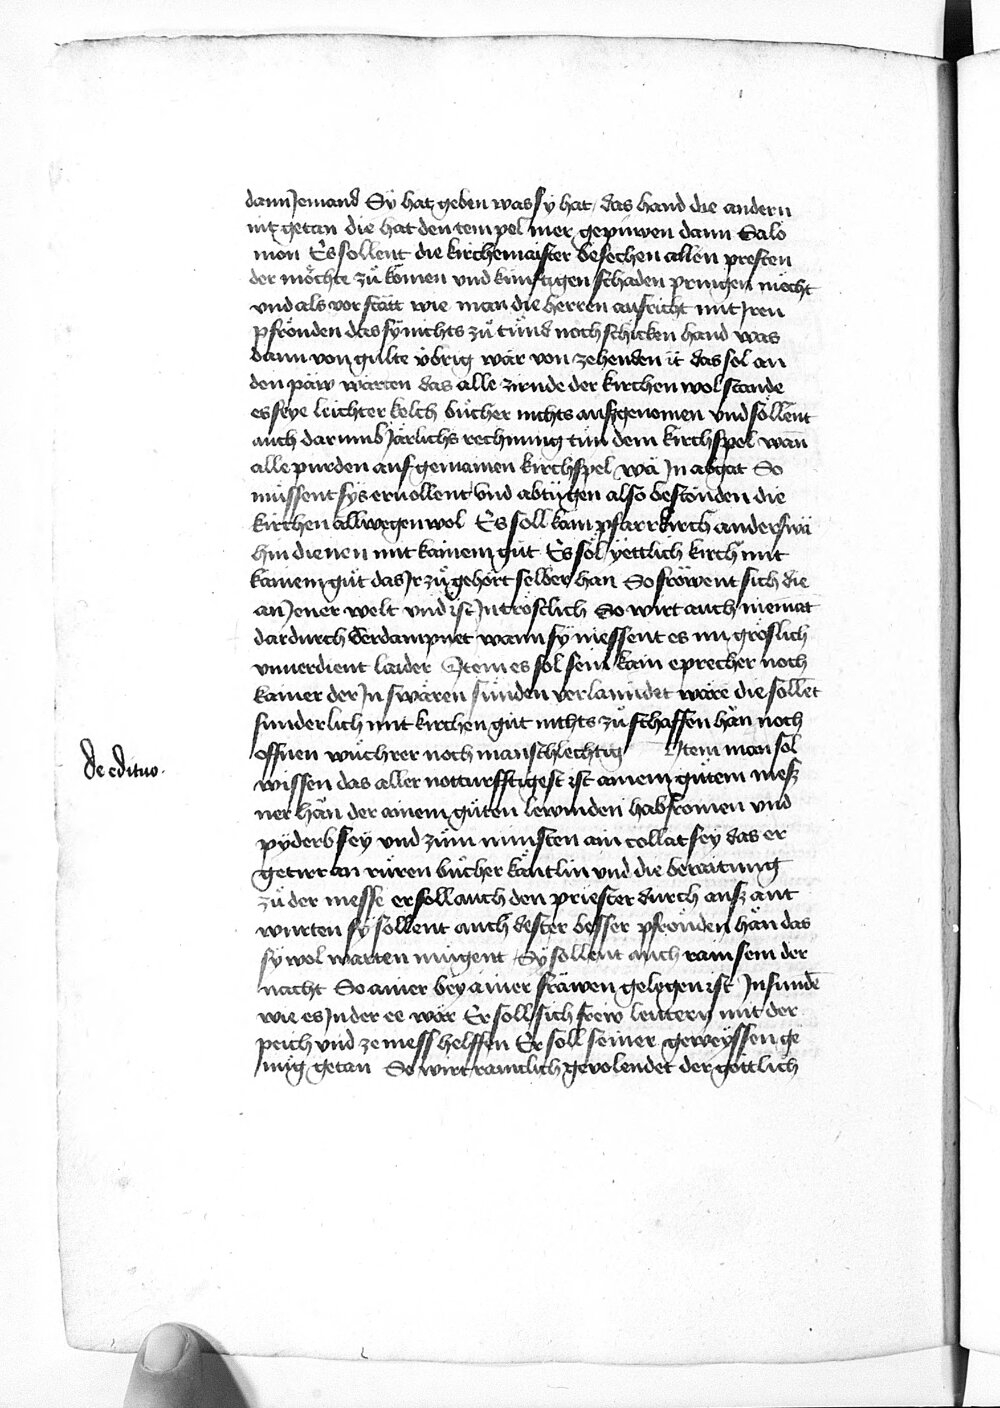 dann Jemand Sy hat geben was sy hat / das hand die andern
nit getan die hat den tempel mer gepuwen dann Salo
mon Es sollent die kirchemaister besechen allen presten
der möchte zů kömen vnd künftigen schaden pringen möcht
vnd als vor statt wie man die herren ausricht mit Jren
pfrönden das sy nichts zů tůnd noch schicken hand was
dann von gulte vbrig wär von zehenden ic das sol an
den päw warten das alle zirnde der kirchen wol stande
es seye leichter kelch bůcher nichts ausgenomen vnd söllent
auch darumb Järlichs rechnung tůn dem kirchspel wann
alle purden auf gemainen kirchspel wä In abgat So
müssent sys eruollent vnd abtügen also bestönden die
kirchen allwegen wol Es soll kain pfarrkirch anderswä
hin dienen mit kainem gůt Es sol yettlich kirch mit
kainem gůt das Ir zů gehört selber han So fröwent sich die
an Jener welt vnd ist In tröstlich So wirt auch niemat
dardurch verdampnet wann sy niessent es nu gröslich
vnuerdient laider Item es sol sein kain eprecher noch
kainer der In swären sünden verlaumdet wäre die sollent
sunderlich mit kirchen gůt nichts zů schaffen hän noch
offnen wůchrer noch manschlechtig Item man sol
wissen das aller notturfftigest ist ainem gůtem mesz
ner hän der ainem gůten lewmden hab fromen vnd
pyderb sey vnd zům minsten ain collat sey das er
geturr an růren bůcher käntlin vnd die beraitung
zů der messe er soll auch den priester durch ausz ant
wurten sy sollent auch dester besser pfrönden hän das
sy wol warten mügent Sy sollent auch rain sein der
nacht So ainer bey ainer fräwen gelegen ist In sünden
wie es In der ee wär Er soll sich frew leuttern mit der
peich vnd ze mess helffen Er soll seiner gewyssen ge
nůg getan So wirt raintlich gevolendet der göttlich
de edituo.